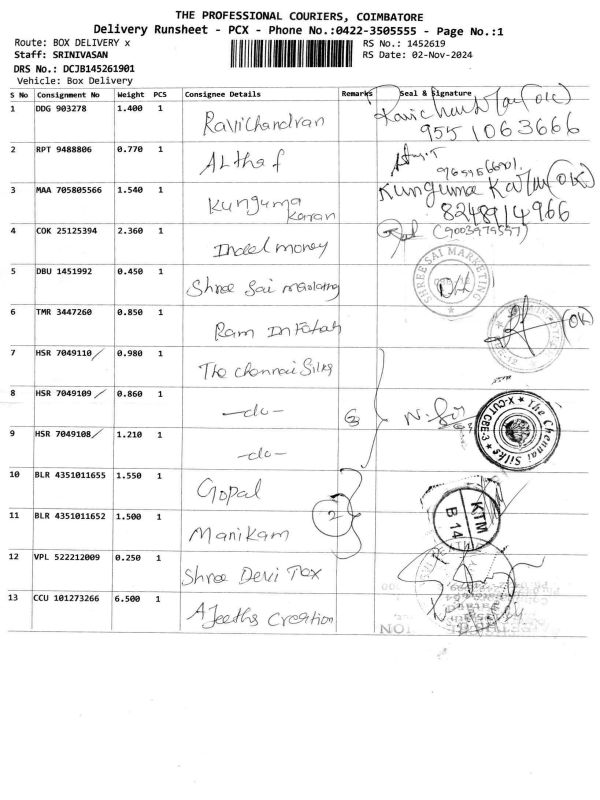 THE PROFESSIONAL COURIERS, COIMBATORE
Delivery Runsheet - PCX - Phone No.:0422-3505555 - Page No.:1
Route: BOX DELIVERY x RS No.: 1452619
Staff: SRINIVASAN RS Date: 02-Nov-2024
DRS No.: DCJB145261901
Vehicle: Box Delivery
S No Consignment No Weight PCS Consignee Details Remarks Seal & Signature
1 DDG 903278 1.400 1 Ravichandran (OK)
9551063666
2 RPT 9488806 0.770 1 Althaf
3 MAA 705805566 1.540 1 Kunguma Kunguma (OK)
8248914966
4 COK 25125394 2.360 1 Indel money (9003979597)
5 DBU 1451992 0.450 1 Shree Sai SHREE SAI MARKETING
6 TMR 3447260 0.850 1 Ram (OK)
7 HSR 7049110 0.980 1 The Chennai Silks
8 HSR 7049109 0.860 1 -do- 3 The Chennai Silks CUT CBE-3
9 HSR 7049108 1.210 1 -do-
10 BLR 4351011655 1.550 1 Gopal
11 BLR 4351011652 1.500 1 Manikam 2 KTM B 14
12 VPL 522212009 0.250 1 Shree Devi Tex
13 CCU 101273266 6.500 1 AJeeths Creation